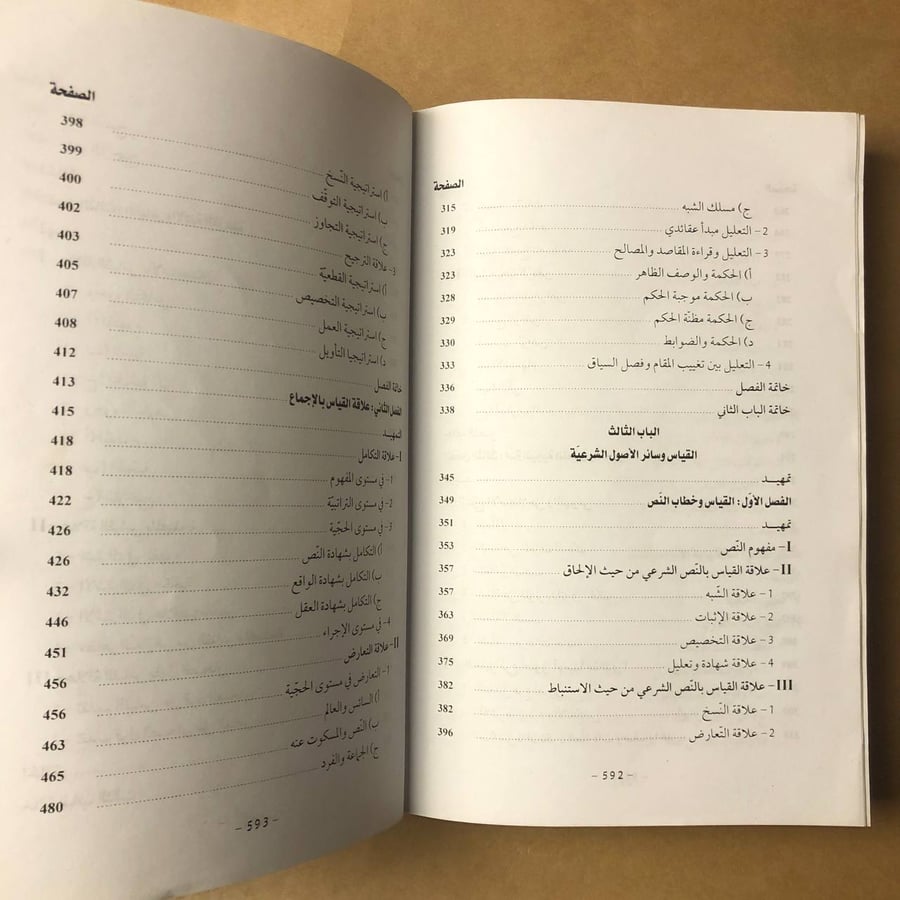 الصفحة
ج) مسلك الشبه 315
2- التعليل مبدأ عقائدي 319
3- التعليل وقراءة المقاصد والمصالح 323
أ) الحكمة والوصف الظاهر 323
ب) الحكمة موجبة الحكم 328
ج) الحكمة مظنّة الحكم 329
د) الحكمة والضوابط 330
4- التعليل بين تغييب المقام وفصل السياق 333
خاتمة الفصل 336
خاتمة الباب الثاني 338
الباب الثالث
القياس وسائر الأصول الشرعيّة
تمهيـد 345
الفصل الأوّل: القياس وخطاب النّص 349
تمهيـد 351
I- مفهوم النّص 353
II- علاقة القياس بالنّص الشرعي من حيث الإلحاق 357
1- علاقة الشّبه 357
2- علاقة الإثبات 363
3- علاقة التخصيص 369
4- علاقة شهادة وتعليل 375
III- علاقة القياس بالنّص الشرعي من حيث الاستنباط 382
1- علاقة النّسخ 382
2- علاقة التّعارض 396
- 592 -
الصفحة
أ) استراتيجية النّسخ 398
ب) استراتيجية التوقّف 399
ج) استراتيجية التجاوز 400
3- علاقة الترجيح 402
أ) استراتيجية القطعيّة 403
ب) استراتيجية التخصيص 405
ج) استراتيجية العمل 407
د) استراتيجيا التأويل 408
خاتمة الفصل 412
الفصل الثاني: علاقة القياس بالإجماع 413
التمهيـد 415
I- علاقة التكامل 418
1- في مستوى المفهوم 418
2- في مستوى التراتبيّة 422
3- في مستوى الحجّية 426
أ) التكامل بشهادة النّص 426
ب) التكامل بشهادة الواقع 432
ج) التكامل بشهادة العقل 446
4- في مستوى الإجراء 451
II- علاقة التعارض 456
1- التعارض في مستوى الحجّية 456
أ) السائس والعالم 463
ب) النّص والمسكوت عنه 465
ج) الجماعة والفرد 480
- 593 -